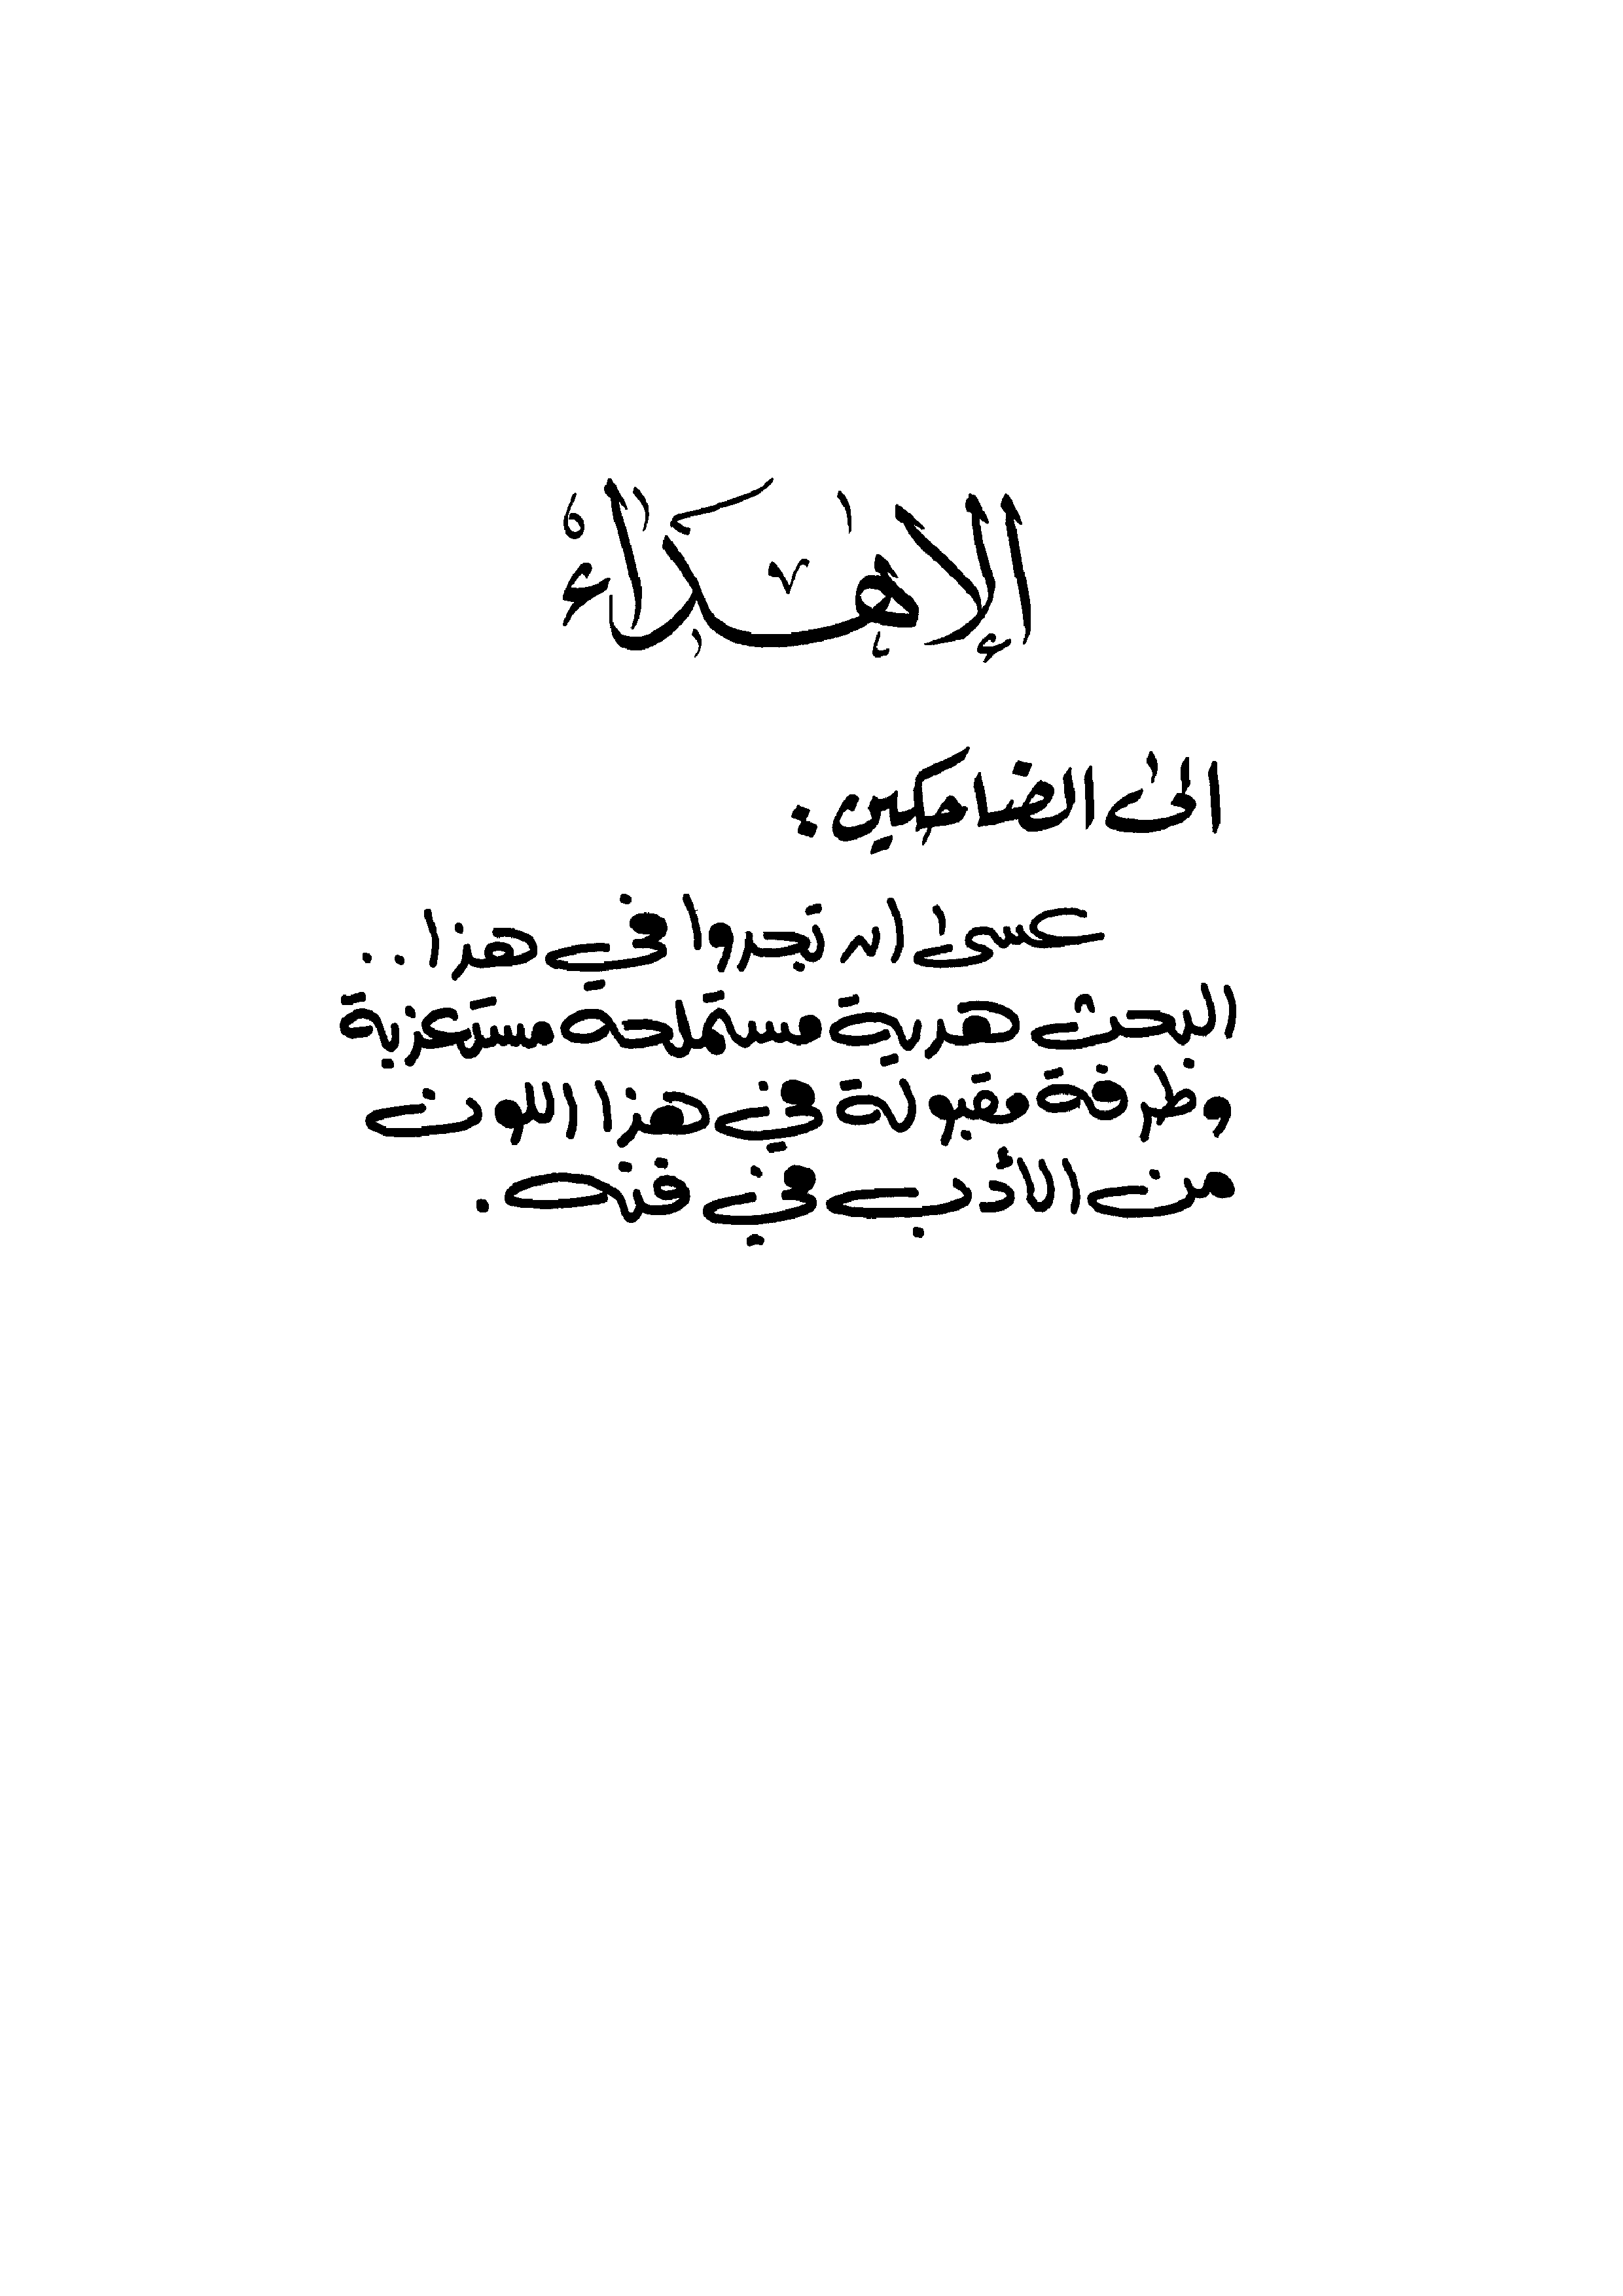 الإهداء
الى الضاحكين :
عسى ان تجدوا في هذا ..
البحث هدية مستملحة مستعذبة
وظرفة مقبولة في هذا اللون
من الأدب في فنه .